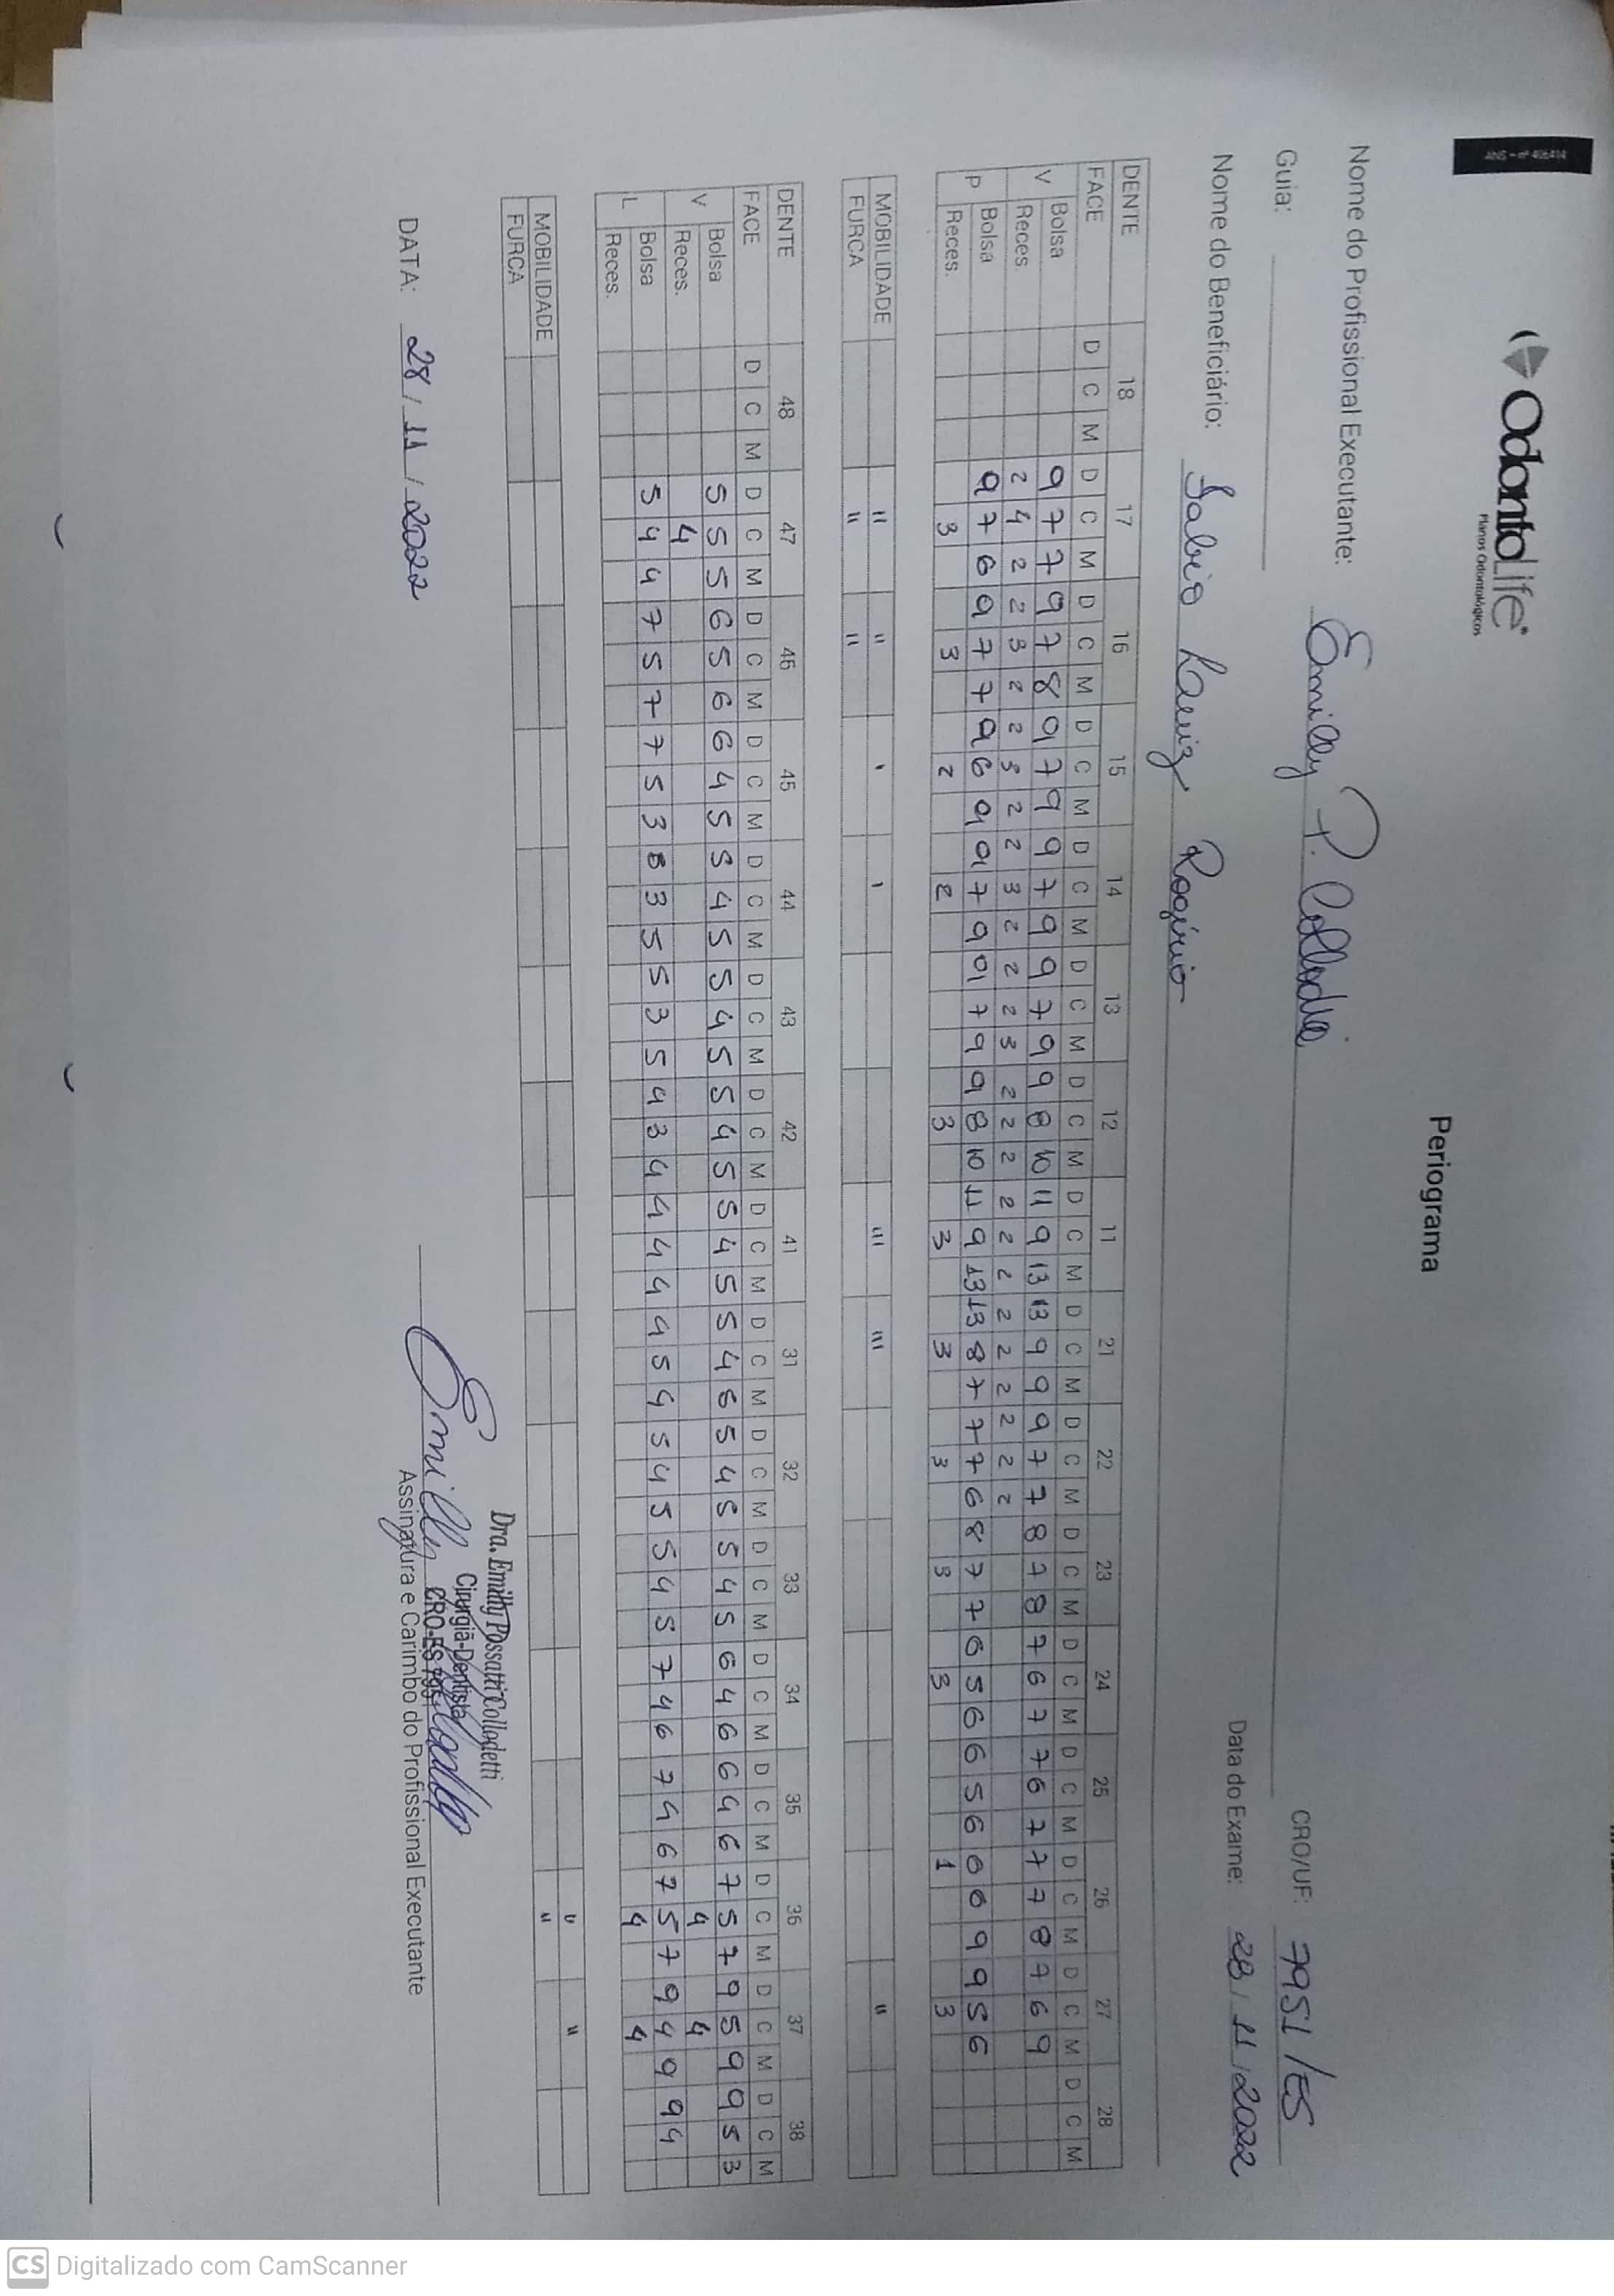 ANS - nº 406414
OdontoLife®
Planos Odontológicos
Periograma
Nome do Profissional Executante: Emilly P. Collodetti
Guia: CRO/UF: 7951/ES
Nome do Beneficiário: Luiz Rogério Data do Exame: 28/11/2022
DENTE 18 17 16 15 14 13 12 11 21 22 23 24 25 26 27 28
FACE D C M D C M D C M D C M D C M D C M D C M D C M D C M D C M D C M D C M D C M D C M D C M D C M
V Bolsa 9 7 7 9 7 8 9 7 9 9 7 9 9 7 9 9 8 10 11 9 13 13 9 9 9 7 7 8 7 8 7 6 7 7 6 7 7 7 8 7 6 9
Reces. 2 4 2 2 3 2 2 3 2 2 3 2 2 2 3 2 2 2 2 2 2 2 2 2 2 2 2
P Bolsa 9 7 6 9 7 7 9 6 9 9 7 9 9 7 9 9 8 10 11 9 13 13 8 7 7 7 6 8 7 7 6 5 6 6 5 6 6 6 9 9 5 6
Reces. 3 3 2 2 3 3 3 3 3 3 1 3
MOBILIDADE II II I I III III II
FURCA II II
DENTE 48 47 46 45 44 43 42 41 31 32 33 34 35 36 37 38
FACE D C M D C M D C M D C M D C M D C M D C M D C M D C M D C M D C M D C M D C M D C M D C M D C M
V Bolsa 5 5 5 6 5 6 6 4 5 5 4 5 5 4 5 5 4 5 5 4 5 5 4 5 5 4 5 5 4 5 6 4 6 6 4 6 7 5 7 9 5 9 9 5 3
Reces. 4 4 4
L Bolsa 5 4 4 7 5 7 7 5 3 3 3 5 5 3 5 4 3 4 4 4 4 4 5 4 5 4 5 5 4 5 7 4 6 7 4 6 7 5 7 9 4 9 9 4
Reces. 4 4
MOBILIDADE II II
FURCA II
DATA: 28/11/2022
Dra. Emilly Possatti Collodetti
Cirurgiã-Dentista
CRO-ES 7951
Emilly Collodetti
Assinatura e Carimbo do Profissional Executante
CS Digitalizado com CamScanner